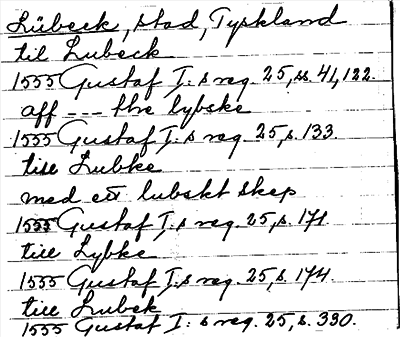 Lübeck, stad, Tyskland
til Lubeck
1555 Gustaf I:s reg. 25, ss. 41, 122.
aff --- the lybske
1555 Gustaf I:s reg. 25, s. 133.
till Lubke
med ett lubskt skep
1555 Gustaf I:s reg. 25, s. 171
till Lybke
1555 Gustaf I:s reg. 25, s. 174
till Lubek
1555 Gustaf I:s reg. 25, s. 330.